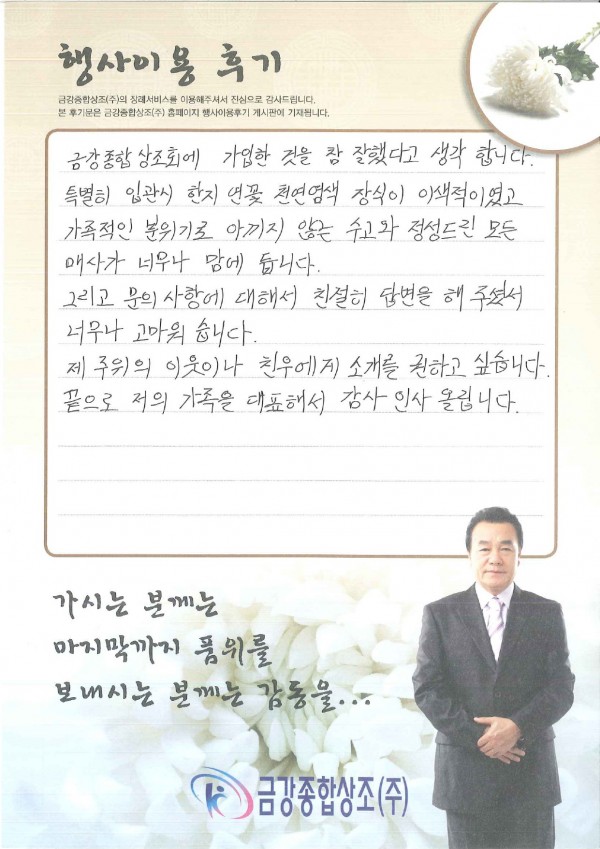 행사이용 후기
금강종합상조(주)의 장례서비스를 이용해주셔서 진심으로 감사드립니다.
본 후기문은 금강종합상조(주) 홈페이지 행사이용후기 게시판에 기재됩니다.
금강종합상조회에 가입한 것을 참 잘했다고 생각 합니다.
특별히 입관시 한지 연꽃 천연염색 장식이 이색적이였고
가족적인 분위기로 아끼지 않는 수고와 정성드린 모든
매사가 너무나 맘에 듭니다.
그리고 문의 사항에 대해서 친절히 답변을 해 주셨서
너무나 고마워 습니다.
제 주위의 이웃이나 친우에게 소개를 권하고 싶습니다.
끝으로 저의 가족을 대표해서 감사 인사 올립니다.
가시는 분께는
마지막까지 품위를
보내시는 분께는 감동을...
금강종합상조(주)